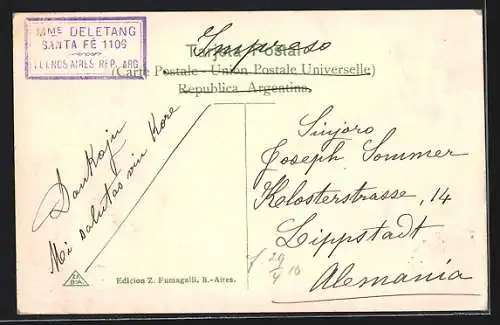 MME DELETANG
SANTA FÉ 1109
BUENOS AIRES REP. ARG.
Tarjeta Postal
Impreso
(Carte Postale - Union Postale Universelle)
Republica Argentina.
Dankoju
Mi salutas vin kore
Sinjoro
Joseph Sommer
Klosterstrasse, 14
Lippstadt
Alemania
29/4 10
Edicion Z. Fumagalli, B.-Aires.